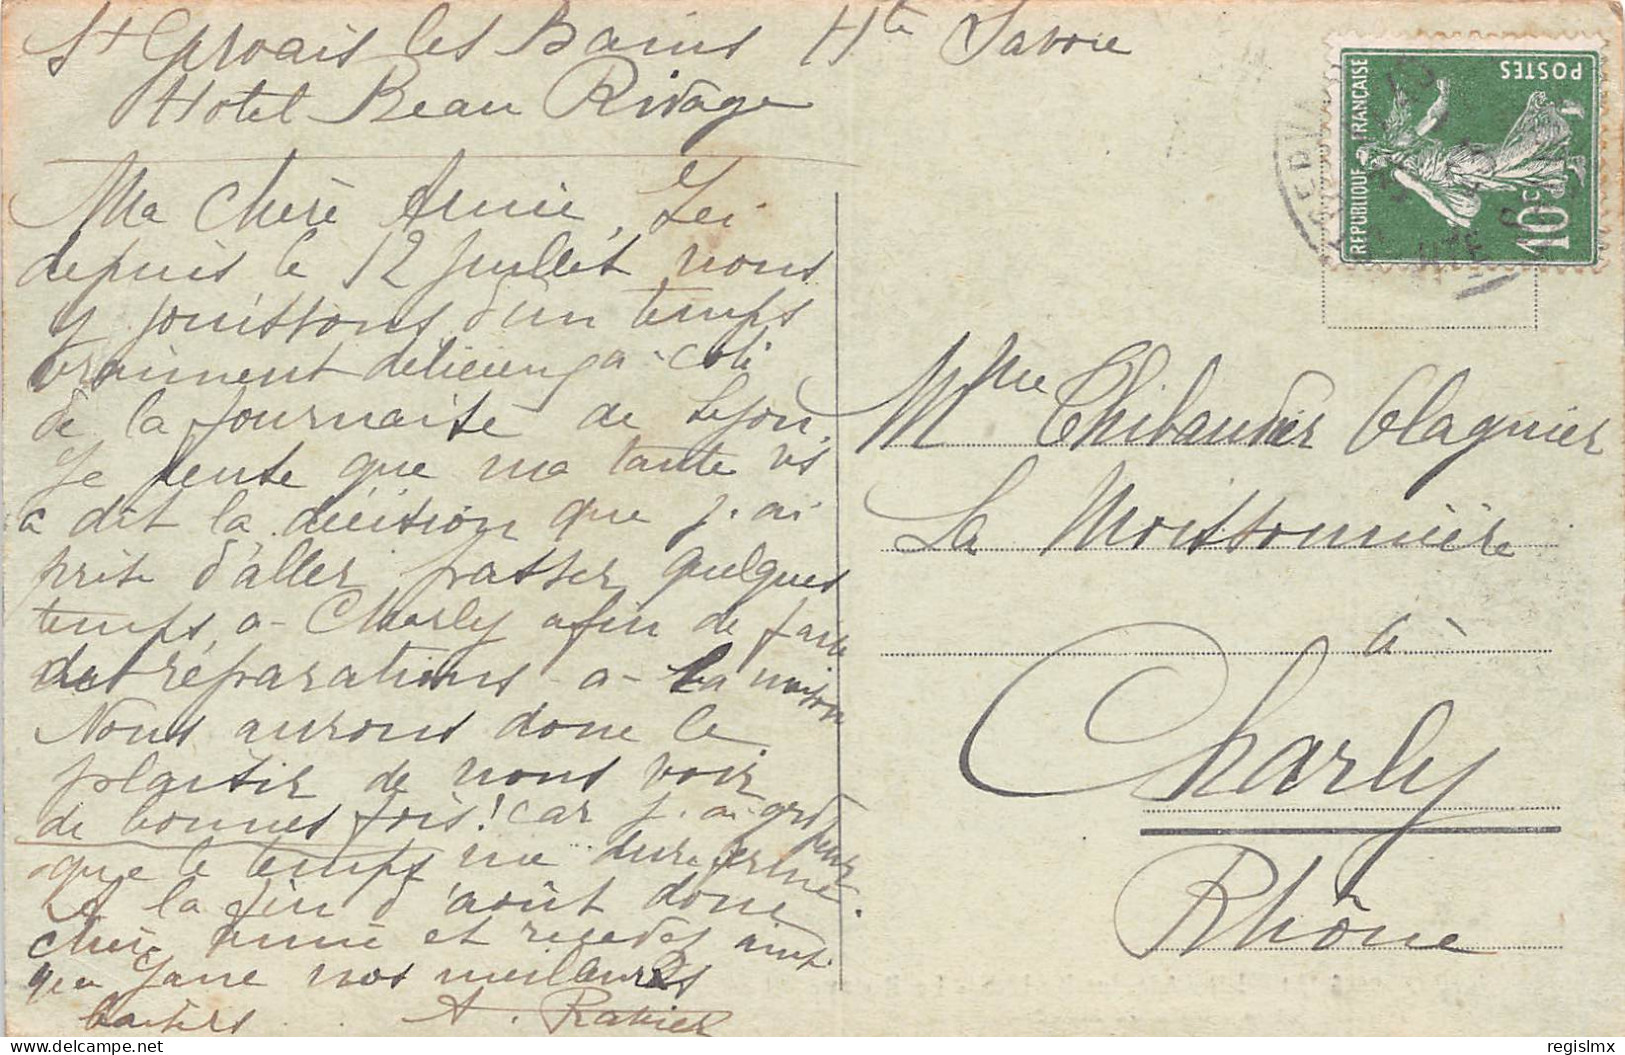 St Gervais les Bains Hte Savoie
Hotel Beau Rivage
Ma Chère Annie, Ici
depuis le 12 Juillet nous
y jouissons d'un temps
vraiment délicieux à côté
de la fournaise de Lyon,
Je pense que ma tante vs
a dit la décision que j'ai
prise d'aller passer quelques
temps, a Charly afin de faire
des réparations a la maison
Nous aurons donc le
plaisir de nous voir
de bonnes fois! car j'ai gd peur
que le temps me dure ferme.
A la fin d'août donc
chère Annie et recevez ainsi
que Jane nos meilleurs
baisers. A. Ravier
POSTES
REPUBLIQUE FRANÇAISE
10c
HTE
Mme Thibaudier Clagnier
La Moissonnière
à
Charly
Rhône
regislmx
delcampe.net